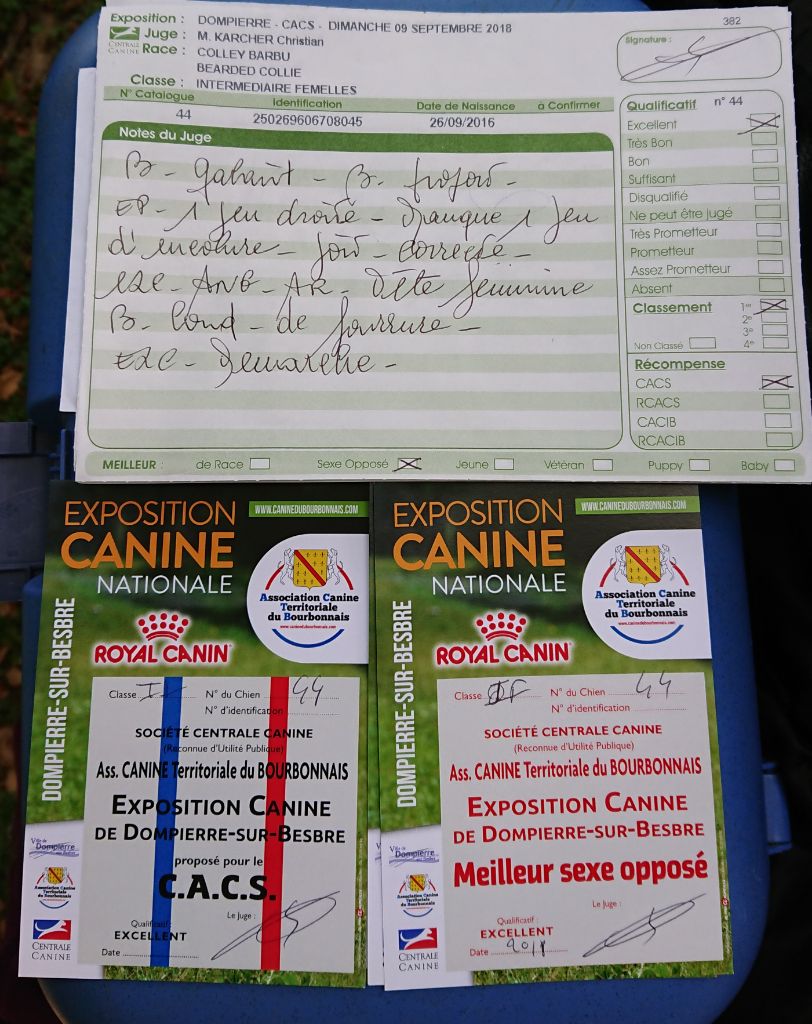 Exposition : DOMPIERRE - CACS - DIMANCHE 09 SEPTEMBRE 2018
382
CENTRALE CANINE
Juge : M. KARCHER Christian
Race : COLLEY BARBU
BEARDED COLLIE
Classe : INTERMEDIAIRE FEMELLES
Signature :
N° Catalogue Identification Date de Naissance à Confirmer
44 250269606708045 26/09/2016
Notes du Juge
B - gabarit - B.
EP - 1 jeu droite - Manque 1 jeu
d'encolure - - correcte -
EXC - ANG - AR - Tête féminine
B - Cond - de fourrure -
EXC - Démarche -
Qualificatif n° 44
Excellent
Très Bon
Bon
Suffisant
Disqualifié
Ne peut être jugé
Très Prometteur
Prometteur
Assez Prometteur
Absent
Classement 1er
2e
3e
Non Classé 4e
Récompense
CACS
RCACS
CACIB
RCACIB
MEILLEUR : de Race Sexe Opposé Jeune Vétéran Puppy Baby
EXPOSITION
CANINE
NATIONALE
WWW.CANINEDUBOURBONNAIS.COM
Association Canine
Territoriale
du Bourbonnais
www.caninedubourbonnais.com
ROYAL CANIN
DOMPIERRE-SUR-BESBRE
Classe N° du Chien 44
N° d'identification
SOCIÉTÉ CENTRALE CANINE
(Reconnue d'Utilité Publique)
Ass. CANINE Territoriale du BOURBONNAIS
EXPOSITION CANINE
DE DOMPIERRE-SUR-BESBRE
proposé pour le
C.A.C.S.
Le Juge :
Qualificatif :
EXCELLENT
Date
Ville de Dompierre
Association Canine
Territoriale
du Bourbonnais
CENTRALE
CANINE
EXPOSITION
CANINE
NATIONALE
WWW.CANINEDUBOURBONNAIS.COM
Association Canine
Territoriale
du Bourbonnais
www.caninedubourbonnais.com
ROYAL CANIN
DOMPIERRE-SUR-BESBRE
Classe IF N° du Chien 44
N° d'identification
SOCIÉTÉ CENTRALE CANINE
(Reconnue d'Utilité Publique)
Ass. CANINE Territoriale du BOURBONNAIS
EXPOSITION CANINE
DE DOMPIERRE-SUR-BESBRE
Meilleur sexe opposé
Le Juge :
Qualificatif :
EXCELLENT
Date 2018
Ville de Dompierre
Association Canine
Territoriale
du Bourbonnais
CENTRALE
CANINE